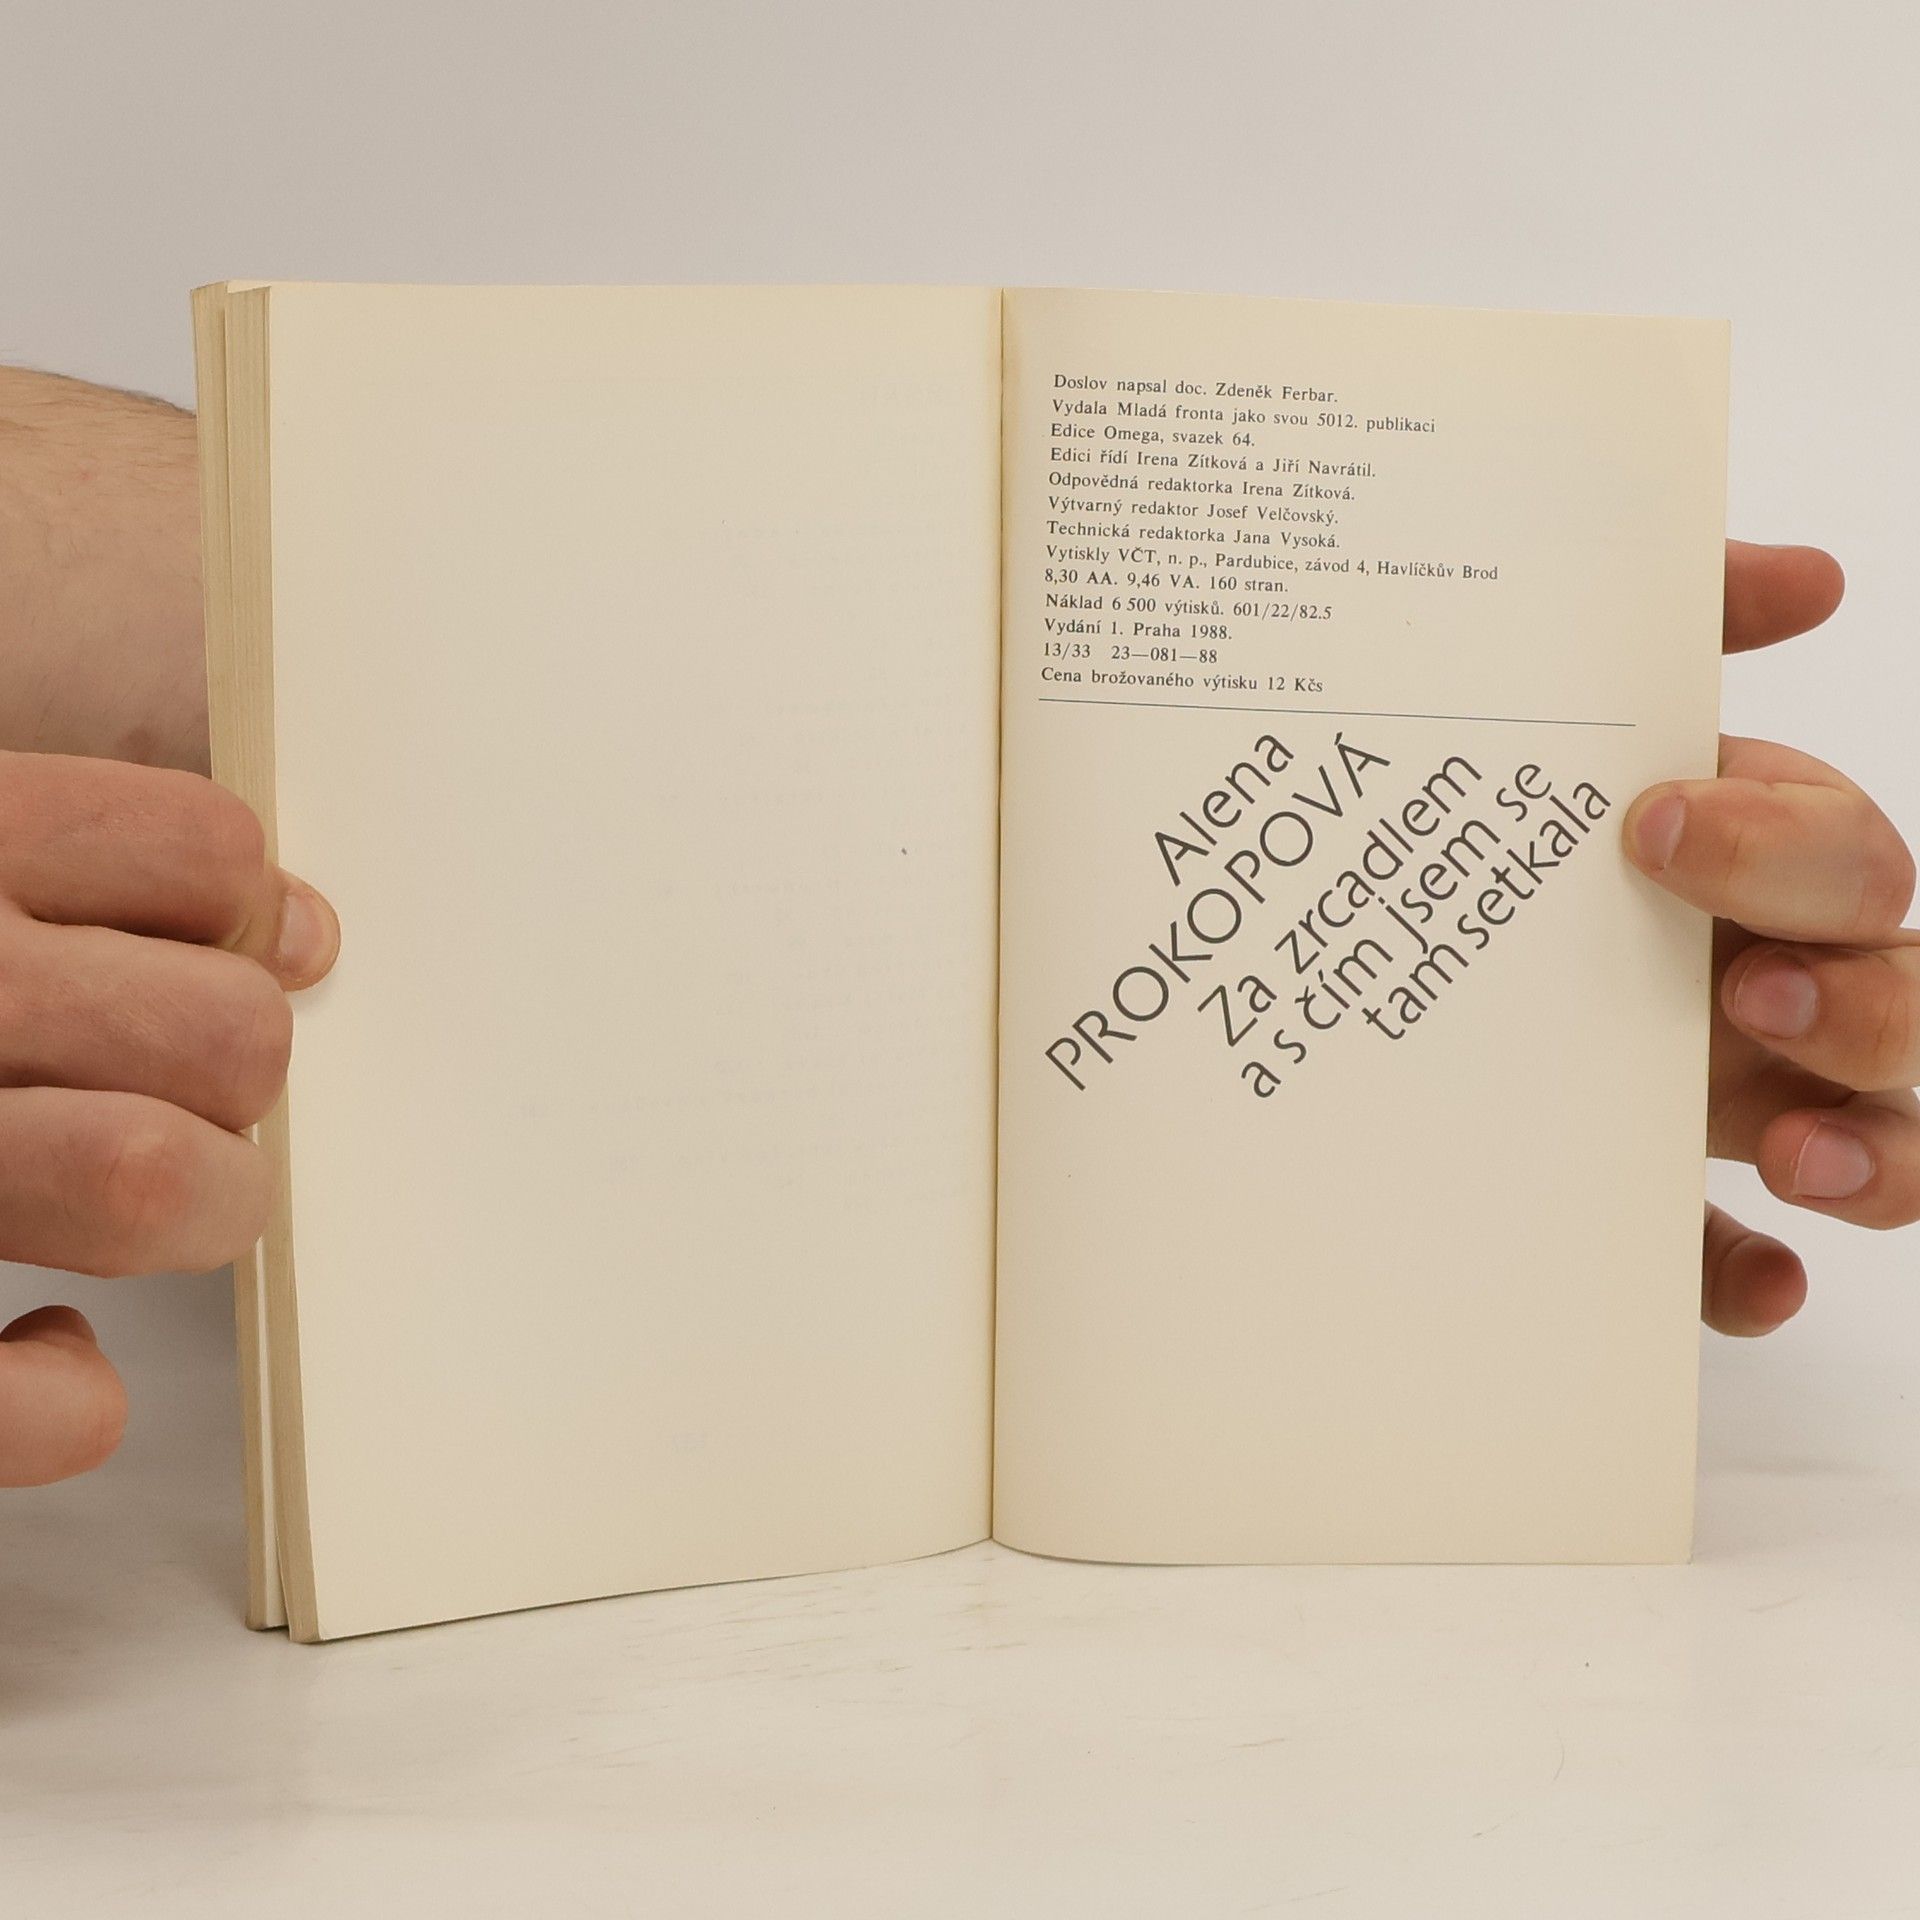 Doslov napsal doc. Zdeněk Ferbar.
Vydala Mladá fronta jako svou 5012. publikaci
Edice Omega, svazek 64.
Edici řídí Irena Zítková a Jiří Navrátil.
Odpovědná redaktorka Irena Zítková.
Výtvarný redaktor Josef Velčovský.
Technická redaktorka Jana Vysoká.
Vytiskly VČT, n. p., Pardubice, závod 4, Havlíčkův Brod
8,30 AA. 9,46 VA. 160 stran.
Náklad 6 500 výtisků. 601/22/82.5
Vydání 1. Praha 1988.
13/33 23—081—88
Cena brožovaného výtisku 12 Kčs
Alena
PROKOPOVÁ
Za zrcadlem
a s čím jsem se
tam setkala